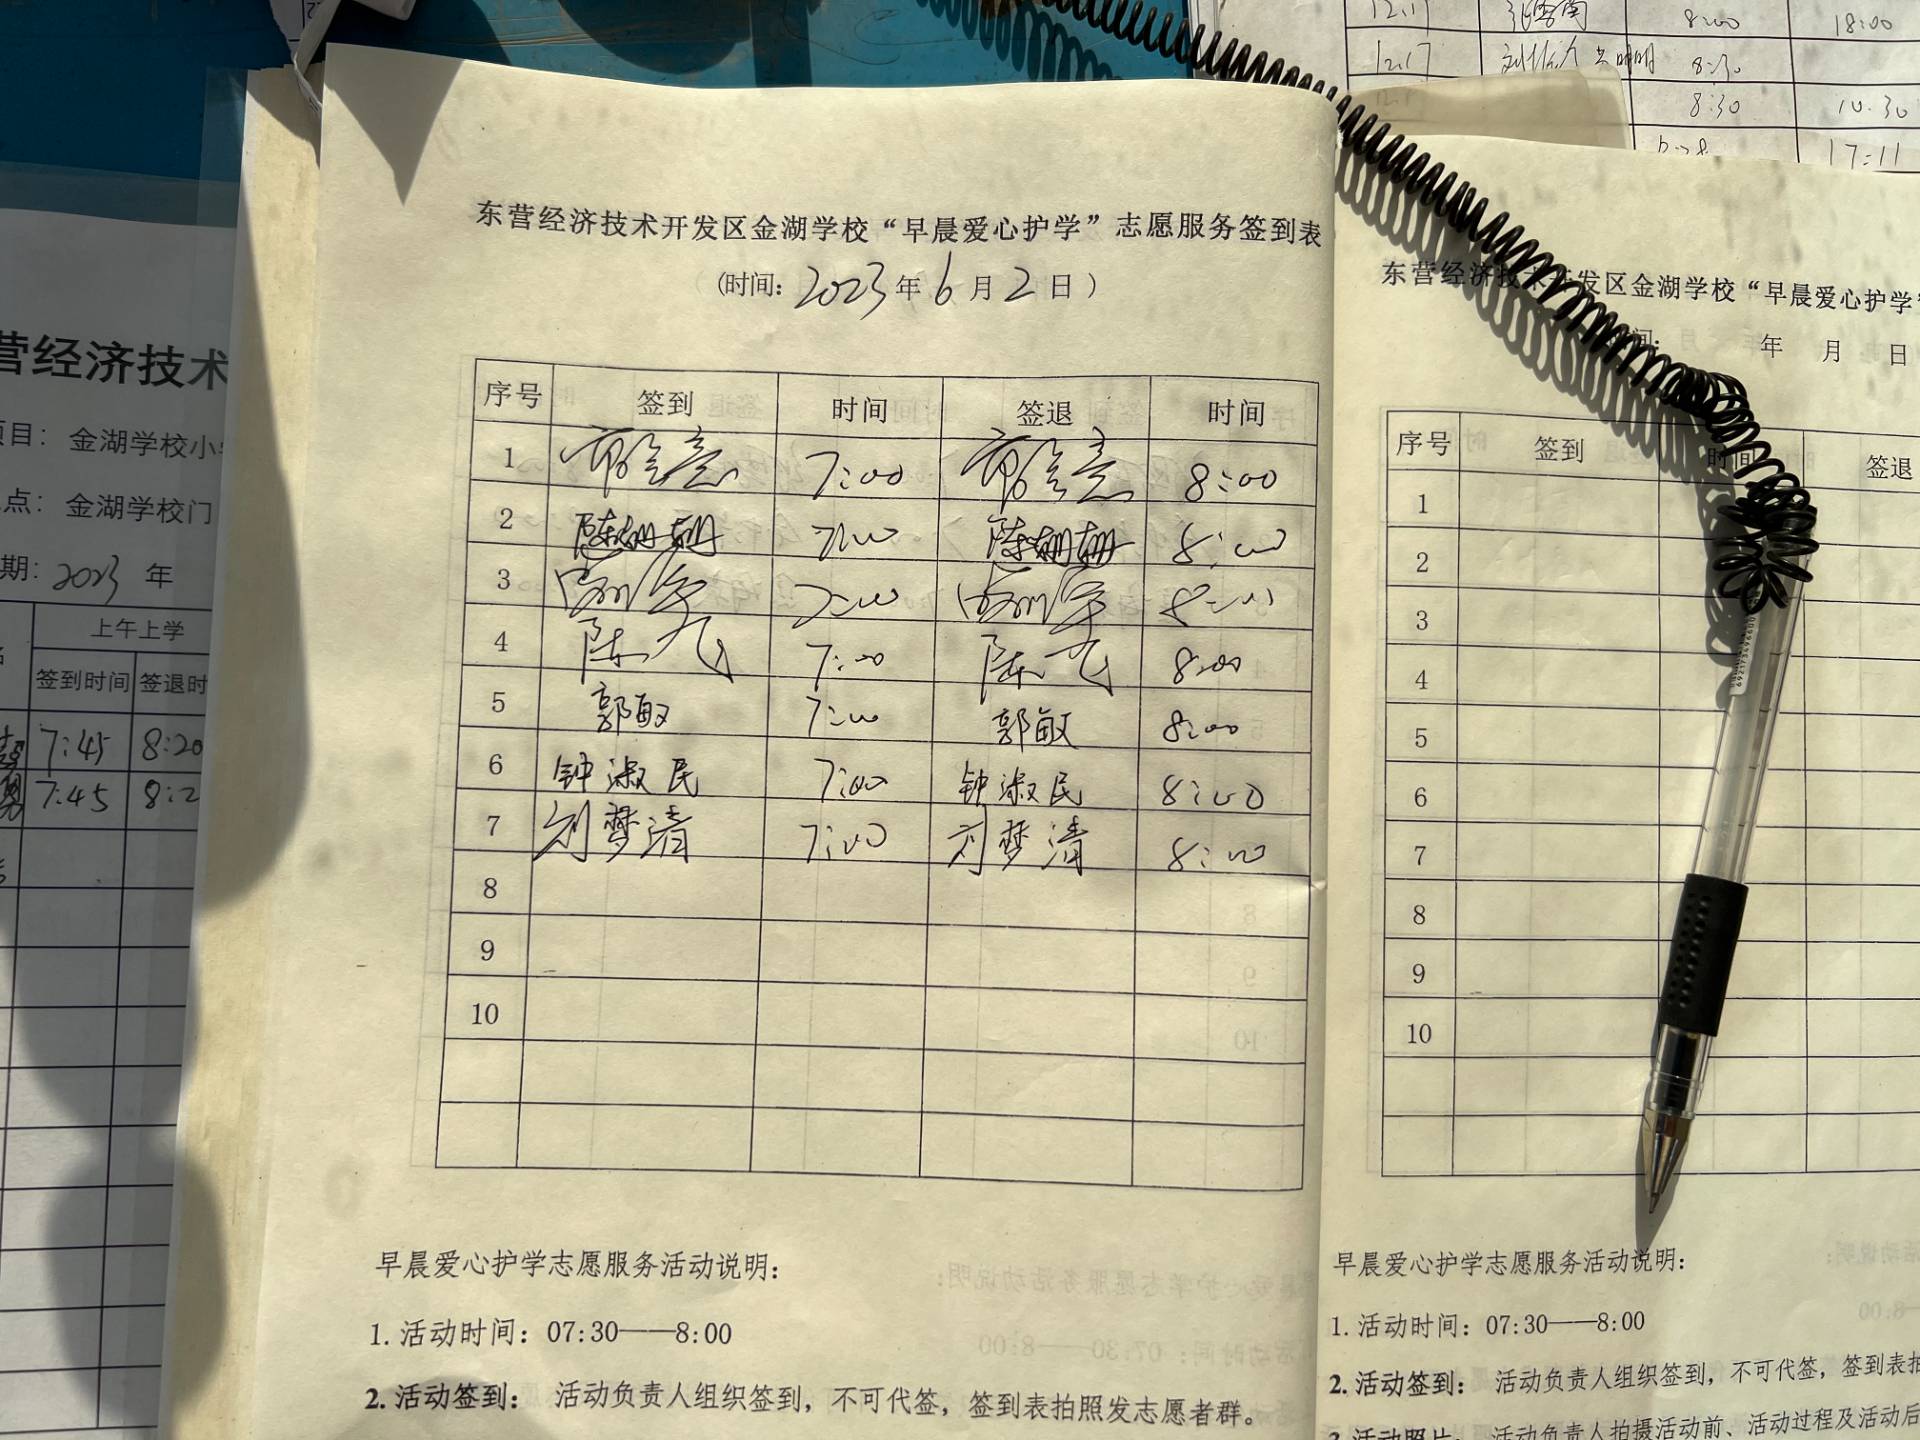 12.17 8:00 18:00
12.17 8:30
8:30 10.30
17:11
东营经济技术开发区金湖学校“早晨爱心护学”志愿服务签到表
(时间: 2023 年 6 月 2 日 )
序号 签到 时间 签退 时间
1 7:00 8:00
2 陈姗姗 7:00 陈姗姗 8:00
3 7:00 8:00
4 陈 7:00 陈 8:00
5 郭敏 7:00 郭敏 8:00
6 钟淑民 7:00 钟淑民 8:00
7 刘梦清 7:00 刘梦清 8:00
8
9
10
早晨爱心护学志愿服务活动说明:
1. 活动时间: 07:30——8:00
2. 活动签到: 活动负责人组织签到，不可代签，签到表拍照发志愿者群。
营经济技术
项目: 金湖学校小
点: 金湖学校门
期: 2023 年
上午上学
签到时间 签退时
7:45 8:20
7:45 8:2
东营经济技术开发区金湖学校“早晨爱心护学”
间: 年 月 日
序号 签到 时间 签退
1
2
3
4
5
6
7
8
9
10
早晨爱心护学志愿服务活动说明:
1. 活动时间: 07:30——8:00
2. 活动签到: 活动负责人组织签到，不可代签，签到表拍
3. 活动照片: 活动负责人拍摄活动前、活动过程及活动后